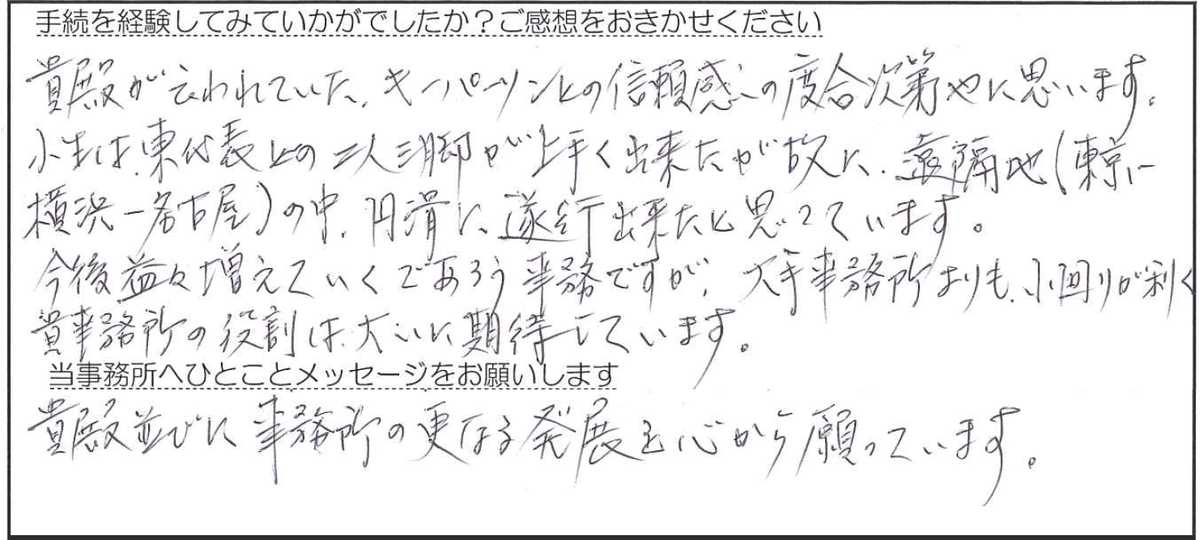 手続を経験してみていかがでしたか？ご感想をおきかせください
貴殿が云われていた、キーパーソンとの信頼感の度合次第やに思います。
小生は、東代表との二人三脚が上手く出来たが故に、遠隔地(東京ー
横浜ー名古屋)の中、円滑に遂行出来たと思っています。
今後益々増えていくであろう事務ですが、大手事務所よりも、小回りが利く
貴事務所の役割は大いに期待しています。
当事務所へひとことメッセージをお願いします
貴殿並びに事務所の更なる発展を心から願っています。